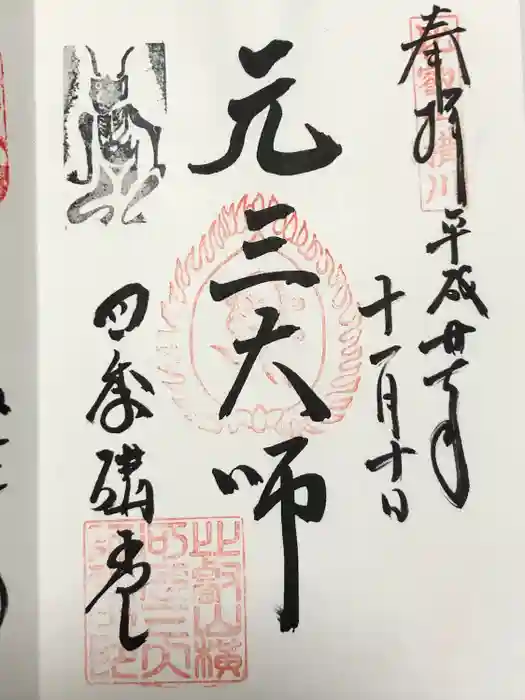 奉拝
比叡山横川
平成廿 年
十一月十日
元三大師
四季講堂
比叡山横